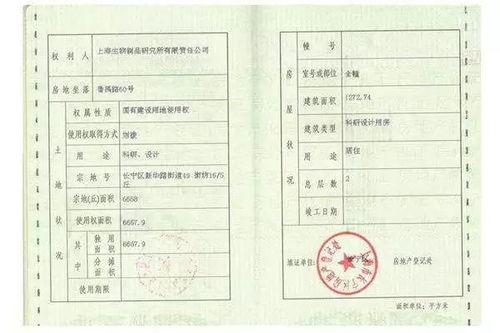 权利人 上海生物制品研究所有限责任公司
房地坐落 番禺路60号
土地状况
权属性质 国有建设用地使用权
使用权取得方式 划拨
用途 科研、设计
宗地号 长宁区新华路街道49 街坊16/5丘
宗地(丘)面积 6658
使用权面积 6657.9
其中
独用面积 6657.9
分摊面积
使用期限
房屋状况
幢号
室号或部位 全幢
建筑面积 1272.74
建筑类型 科研设计用房
用途 居住
总层数 2
竣工日期
填证单位: 房地产登记处
面积单位: 平方米